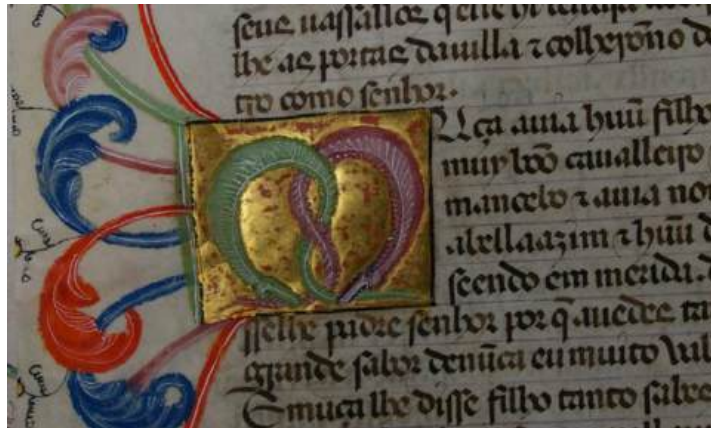 seus uassallos q̃ elle hi
lhe as portas da uilla ⁊ colherõno de
tro como senhor.
MUça auia huũ filho
muy bõo caualleiro
mancebo ⁊ auia no
abellaazim ⁊ huũ d
seendo em merida. d
sselhe padre senhor por q̃ auedes tan
grande sabor denũca eu muito ual
E muça lhe disse filho tanto sabe